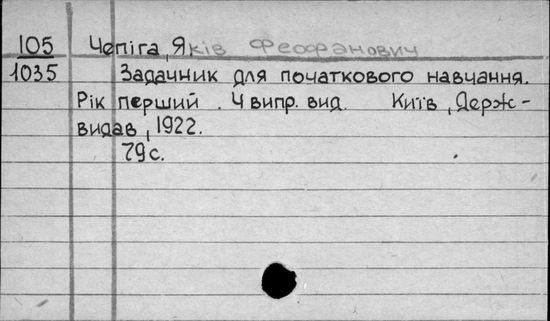 105 Чепіга, Яків Феофанович
1035 Задачник для початкового навчання.
Рік перший. 4 випр. вид. Київ, Держ-
видав, 1922.
79 с.